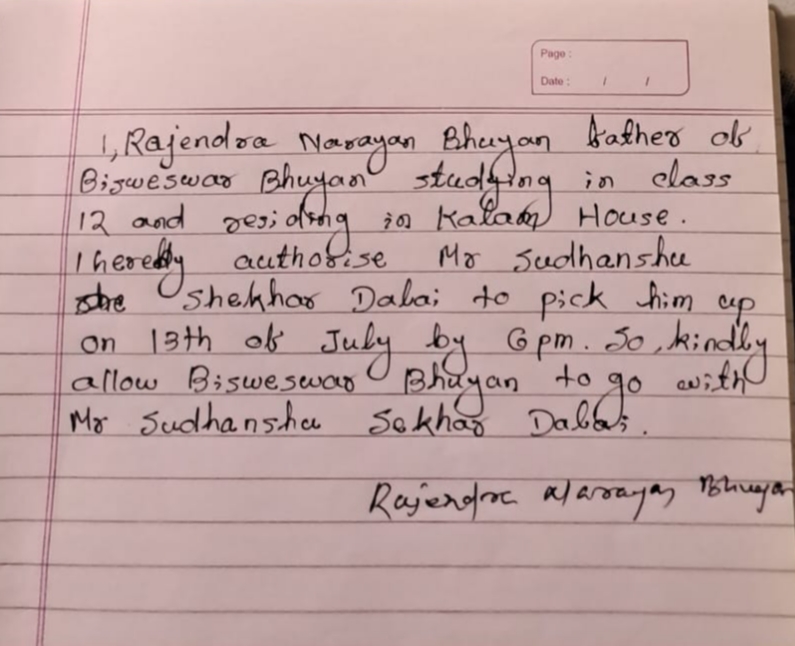 Page :
Date : / /
I, Rajendra Narayan Bhuyan father of
Bisweswar Bhuyan studying in class
12 and residing in Kalam House.
I hereby authorise Mr Sudhanshu
Shekhar Dalai to pick him up
on 13th of July by 6 pm. So, kindly
allow Bisweswar Bhuyan to go with
Mr Sudhanshu Sekhar Dalai.
Rajendra Narayan Bhuyan